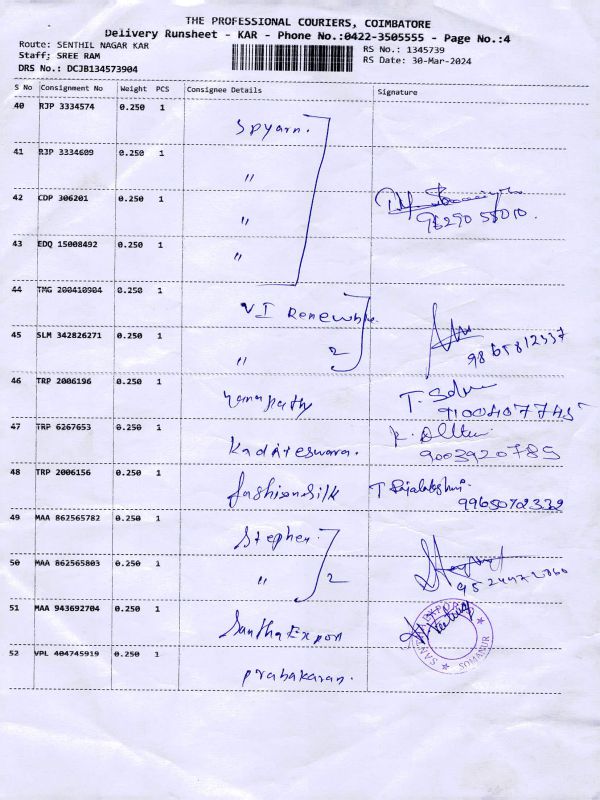 THE PROFESSIONAL COURIERS, COIMBATORE
Delivery Runsheet - KAR - Phone No.:0422-3505555 - Page No.:4
Route: SENTHIL NAGAR KAR
RS No.: 1345739
Staff; SREE RAM
RS Date: 30-Mar-2024
DRS No.: DCJB134573904
S No Consignment No Weight PCS Consignee Details Signature
40 RJP 3334574 0.250 1
Spyarn.
41 RJP 3334609 0.250 1
"
42 CDP 306201 0.250 1
"
43 EDQ 15008492 0.250 1
"
44 TMG 200410904 0.250 1
VI Renewable
45 SLM 342826271 0.250 1
" 2
9865812337
46 TRP 2006196 0.250 1
T.
47 TRP 6267653 0.250 1
Kadriteswara.
K.
9003920785
48 TRP 2006156 0.250 1
fashionsilk
T Rajalakshmi.
9965072332
49 MAA 862565782 0.250 1
Stephen.
50 MAA 862565803 0.250 1
" 2
51 MAA 943692704 0.250 1
Santha Export
SOMANUR
52 VPL 404745919 0.250 1
prabakaran.